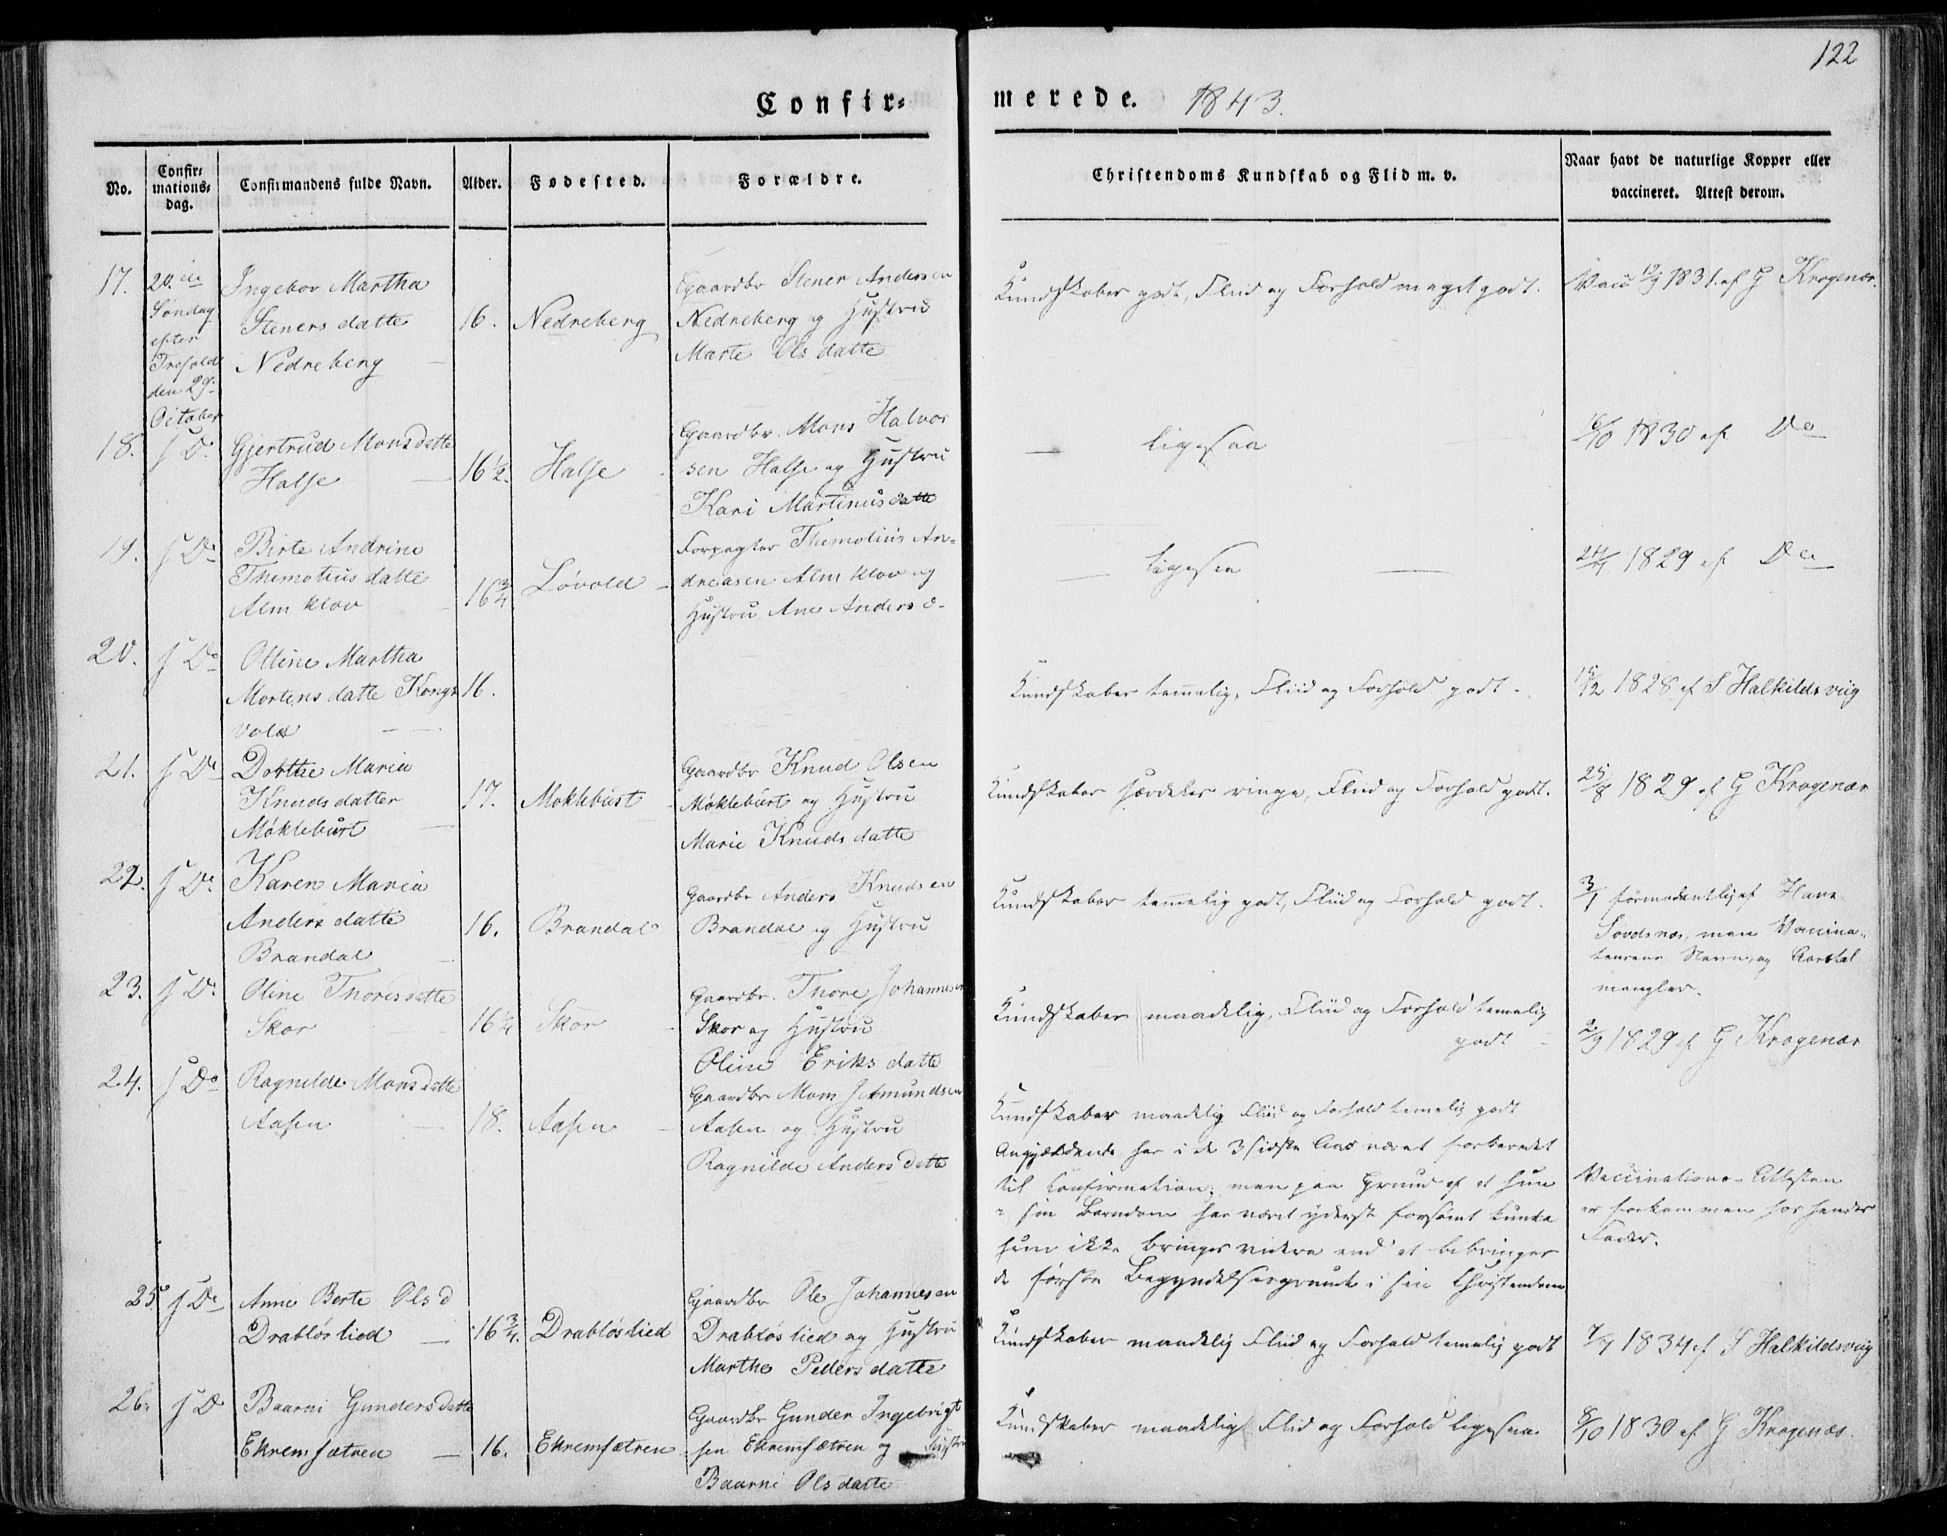 122
Confir-
merede. 1843.
No.
Confir-
mations-
dag.
Confirmandens fulde Navn.
Alder.
Fødested.
Forældre.
Christendoms Kundskab og Flid m. v.
Naar havt de naturlige Kopper eller
vaccineret. Attest derom.
17.
20.
Søndag
efter
Trefold
den 29
October
Ingebor Martha
Steners datte
Nedreberg
16.
Nedreberg
Gaardbr Stener Andersen
Nedreberg og Hustru
Marte Ols datte
Kundskaber godt, Fliid og Forhold meget godt.
Vacc 1831. af G Krogenæs
18.
Gjertrud Mons datte
Halse
16 1/2.
Halse
Gaardbr. Mons Halvor
sen Halse og Hustru
Kari Martinus datte
— ligesaa
6/10 1830 af Do
19.
Birte Andrine
Themotius datte
Almklov
16 3/4
Løvold
Forpagter Themotius An-
dreasen Almklov og
Hustru Ane Anders d-
— ligesaa —
1829 af Do
20.
Olline Martha
Mortens datte Kongs
vold
16.
Kundskaber temelig, Fliid og Forhold godt.
15/12 1828 af S Halkildsviig
21.
Dorthe Maria
Knuds datter
Møklebust
17.
Moklebust
Gaardbr Knud Olsen
Møklebust og Hustru
Marie Knuds datte
Kundskaber særdeles ringe, Fliid og Forhold godt.
25/8 1829 af G Krogenæs
22.
Karen Maria
Anders datte
Brandal
16.
Brandal
Gaardbr Anders Knudsen
Brandal og Hustru
Kundskaber temelig godt, Fliid og Forhold godt.
3/1 formodentlig af Hans
men Vaccina-
teurens Navn og Aarstal
mangler.
23.
Oline Thores datte
Skor
16 1/4
Skor
Gaardbr. Thore Johannesen
Skor og Hustru
Oline Eriks datte
Kundskaber maadelig, Fliid og Forhold temelig
godt
2/9 1829 af G Krogenæs
24.
Ragnilde Mons datte
Aasen
18.
Aasen
Gaardbr Mons Asmundsen
Aasen og Hustru
Ragnilde Anders dette
Kundskaber maadelig Fliid og Forhold temelig godt
Angjældende har i de 3 sidste Aar været forberedet
til Confirmation; men paa Grund af at hun
i sin Barndom har været yderst forsømt kunde
hun ikke bringes videre end at bibringes
de første Begyndelsesgrunde i sin Christendom
Vaccinations-Attesten
er forkommen for hendes
Fader.
25
Anne Berte Ols d
Drabløs lied
16 3/4.
Drabløs lied
Gaardbr Ole Johannesen
Drabløs lied og Hustru
Marthe Peders datte
Kundskaber maadelig Fliid og Forhold temelig godt
1834 af S Halkildsviig
26.
Baarni Gunders datte
Ekremsætren
16.
Ekremsætren
Gaardbr Gunder Ingebrigt
sen Ekremsætren og Hustru
Baarni Ols datte
Kundskaber maadelig Flid og Forhold ligesaa.
8/10 1830 af G Krogenæs.